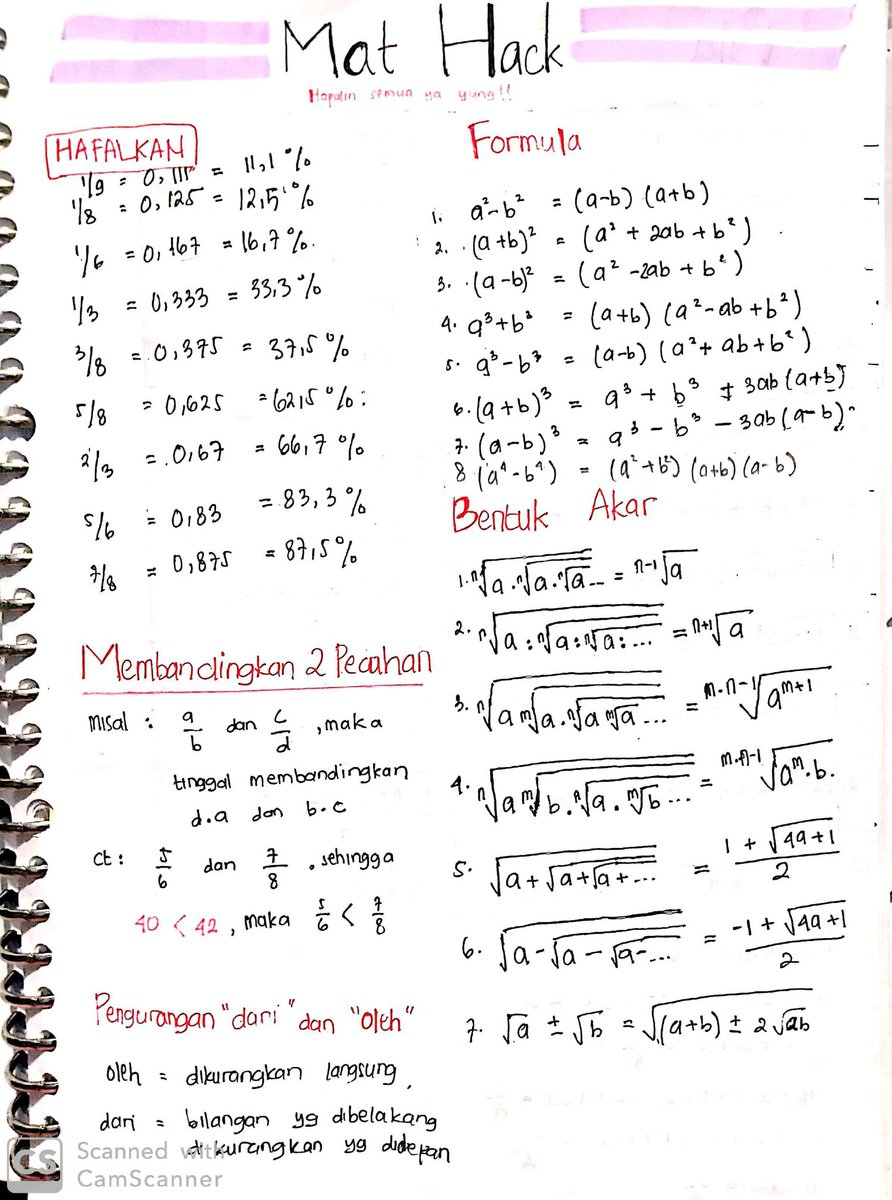 Mat Hack
Hapalin semua ya yung!!
HAFALKAN
1/9 = 0,111 = 11,1 %
1/8 = 0,125 = 12,5 %
1/6 = 0,167 = 16,7 %.
1/3 = 0,333 = 33,3 %
3/8 = 0,375 = 37,5 %
5/8 = 0,625 = 62,5 %
2/3 = 0,67 = 66,7 %
5/6 = 0,83 = 83,3 %
7/8 = 0,875 = 87,5 %
Membandingkan 2 Pecahan
misal : a/b dan c/d , maka
tinggal membandingkan
d.a dan b.c
ct : 5/6 dan 7/8 . sehingga
40 < 42 , maka 5/6 < 7/8
Pengurangan "dari" dan "oleh"
oleh = dikurangkan langsung.
dari = bilangan yg dibelakang
dikurangkan yg didepan
Formula
1. a²-b² = (a-b) (a+b)
2. (a+b)² = (a² + 2ab + b²)
3. (a-b)² = (a² -2ab + b²)
4. a³+b³ = (a+b) (a²-ab+b²)
5. a³-b³ = (a-b) (a²+ ab+b²)
6. (a+b)³ = a³ + b³ + 3ab (a+b)
7. (a-b)³ = a³ - b³ - 3ab (a-b)
8 (a⁴-b⁴) = (a²+b²) (a+b) (a-b)
Bentuk Akar
1. ⁿ√(a.ⁿ√(a.ⁿ√(a...))) = ⁿ⁻¹√a
2. ⁿ√(a:ⁿ√(a:ⁿ√(a:...))) = ⁿ⁺¹√a
3. ⁿ√(a ᵐ√(a.ⁿ√(a ᵐ√(a...)))) = ᵐ·ⁿ⁻¹√(aᵐ⁺¹)
4. ⁿ√(a ᵐ√(b.ⁿ√(a.ᵐ√(b...)))) = ᵐ·ⁿ⁻¹√(aᵐ.b.)
5. √(a+√(a+√(a+...))) = (1 + √(4a+1))/2
6. √(a-√(a-√(a-...))) = (-1 + √(4a+1))/2
7. √a ± √b = √((a+b) ± 2√ab)
CS Scanned with
CamScanner